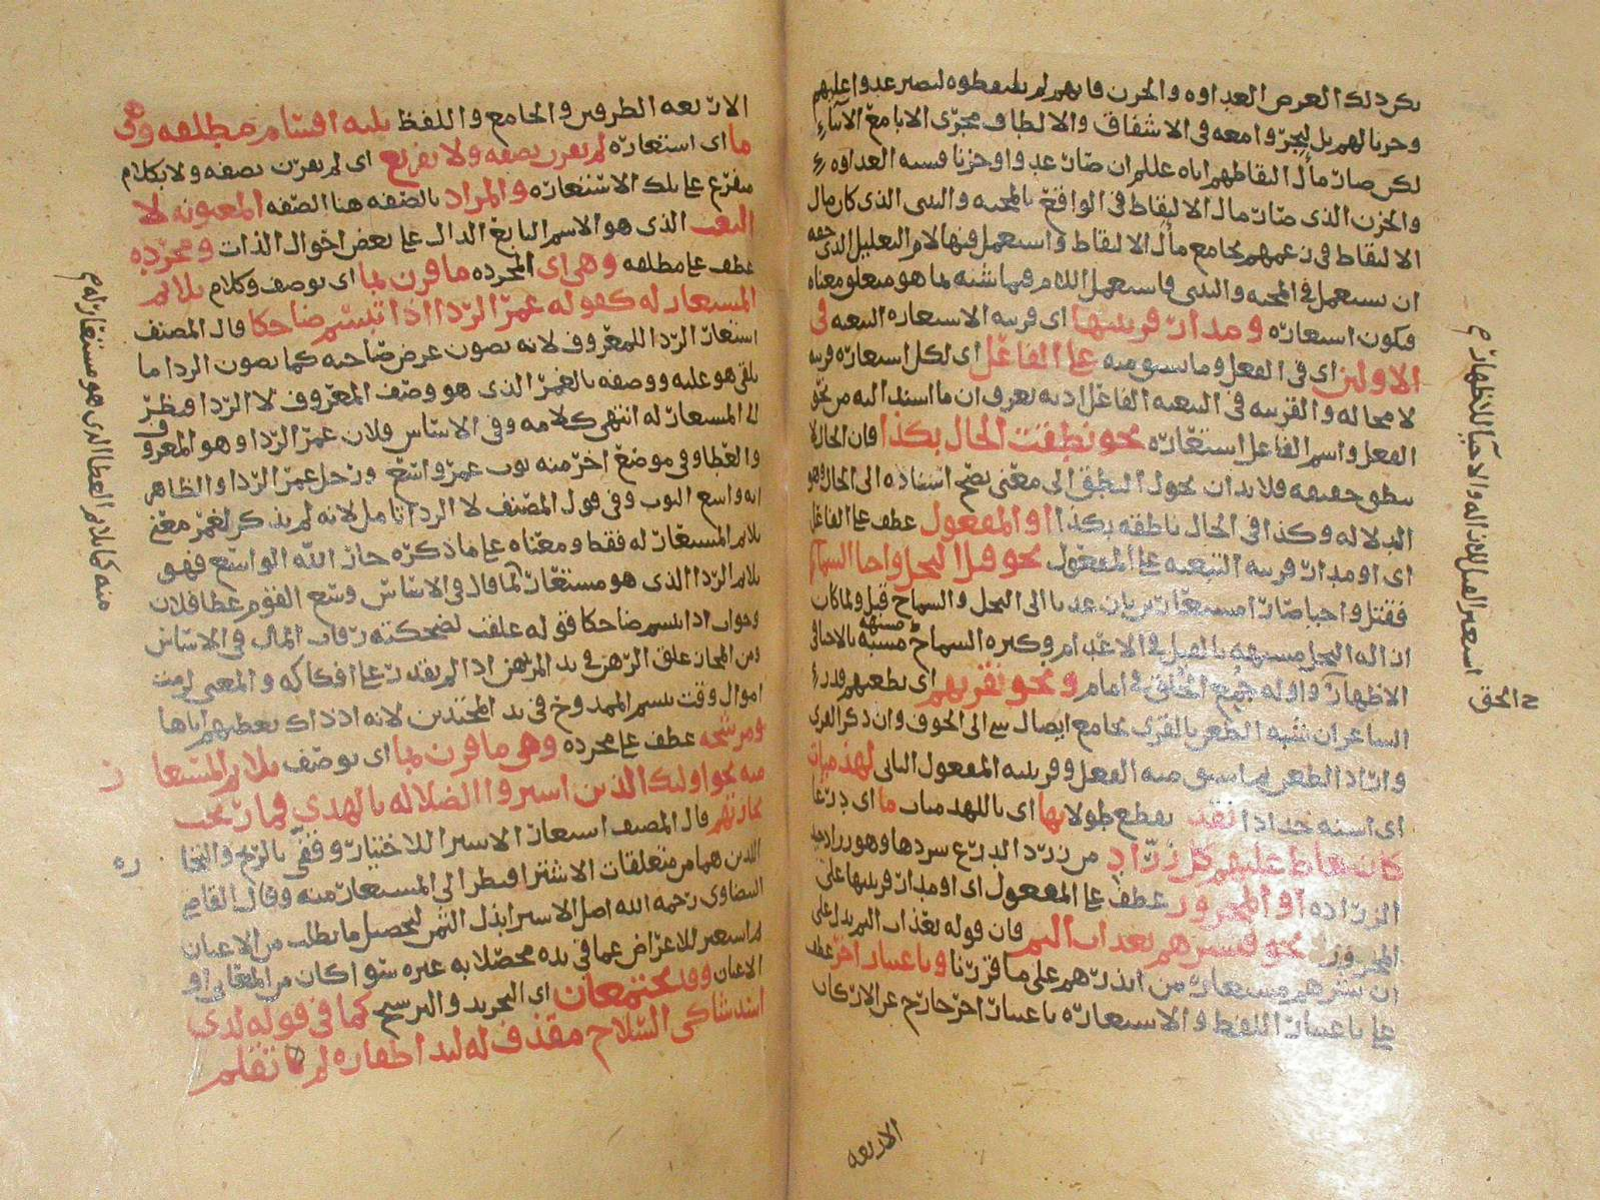 وحزنا لهم بل ليجروا معه في الاشفاق والالطاف مجرى الابا مع الابناء
لكن صار مآل التقاطهم اياه عللم ان صار عدوا وحزنا فشبه العداوة
والحزن الذي صار مآل الالتقاط في الواقع بالمحبه والتبني الذي كان مآل
الالتقاط في زعمهم بجامع مآل الالتقاط واستعمل فيها لام التعليل الذي حقه
ان يستعمل في المحبه والتبني فاستعمل اللام فيما شبه بما هو متعلق معناه
فيكون استعارة ومدار قرينتها اي قرينه الاستعاره التبعيه في
الاولين اي في الفعل وما يشتق منه على الفاعل اي لكل استعاره قرينه
لا محاله والقرينه في التبعيه الفاعل اذ به يعرف ان ما اسند اليه من نحو
الفعل واسم الفاعل استعاره نحو نطقت الحال بكذا فان الحال لا
تنطق حقيقه فلا بد ان يحول النطق الى معنى يصح اسناده الى الحال وهو
الدلاله وكذا في الحال ناطقه بكذا او المفعول عطف على الفاعل
اي او مدار قرينه التبعيه على المفعول نحو قتل البخل واحيا السماح
فقتل واحيا صارا مستعارين بان عديا الى البخل والسماح
ازاله البخل مشبهه بالقتل في الاعدام وكثره السماح مشبهه بالاحيا في
الاظهار واوله جمع الحق في امام ونحو نقريهم اي نطعمهم
الشاعر ان شبه الطعن بالقرى بجامع ايصال شي الى الجوف وان ذكر القرى
واراد الطعن ثم اشتق منه الفعل وقرينته المفعول الثاني لهذميات
اي اسنه حدادا نقد نقطع طولا بها اي باللهدميات ما اي درعا
كان خاط عليهم كل زراد من زرد الدرع سردها وهو
الزراده او المجرور عطف على المفعول اي او مدار قرينتها على
المجرور نحو فبشرهم بعذاب اليم فان قوله بعذاب اليم يدل على
ان بشرهم مستعار من انذرهم على ما قررنا وباعتبار اخر عطف
على باعتبار اللفظ والاستعاره باعتبار اخر خارج عن الاركان
الاربعه
استعير القتل للازاله والاحيا للاظهار م
ح الحق
الاربعه الطرفين والجامع واللفظ ثلثه اقسام مطلقه وهي
ما اي استعاره لم يقرن بصفه ولا تفريع اي لم يقترن بصفه ولا بكلام
متفرع على تلك الاستعاره والمراد بالصفه هنا الصفه المعنويه لا
النعت الذي هو الاسم التابع الدال على بعض احوال الذات ومجرده
عطف على مطلقه وهي اي المجرده ما قرن بما اي بوصف وكلام يلائم
المستعار له كقوله غمر الرداء اذا تبسم ضاحكا قال المصنف
استعار الرداء للمعروف لانه يصون عرض صاحبه كما يصون الرداء ما
يلقى هو عليه ووصفه بالغمر الذي هو وصف المعروف لا الرداء فنظر
الى المستعار له انتهى كلامه وفي الاساس فلان غمر الرداء وهو المعروف
والعطا وفي موضع اخر منه ثوب غمر واسع ورجل غمر الرداء والظاهر
انه واسع الثوب وفي قول المصنف لا الرداء تامل لانه لم يذكر لغمر معنى
يلائم المستعار له فقط ومعناه على ما ذكره جار الله الواسع فهو
يلائم الرداء الذي هو مستعار كما قال في الاساس وسع القوم عطا فلان
وجواب اذا تبسم ضاحكا قوله غلقت لضحكته رقاب المال في الاساس
ومن المجاز غلق الرهن في يد المرتهن اذا لم يقدر على افتكاكه والمعنى لزمت
اموال وقت تبسم الممدوح في يد المجتدين لانه اذ ذاك يعطيهم اياها
ومرشحه عطف على مجرده وهي ما قرن بما اي بوصف يلائم المستعار
منه نحو اولئك الذين اشتروا الضلاله بالهدى فما ربحت
تجارتهم قال المصنف استعار الاشترا للاختيار وقفى بالربح والتجا
ره
اللذين هما من متعلقات الاشترا فنظر الى المستعار منه وقال القاضي
البيضاوي رحمه الله اصل الاشترا بذل الثمن لتحصيل ما يطلب من الاعيان
ثم استعير للاعراض عما في يده محصلا به غيره سوا كان من المعاني او
الاعيان وقد يجتمعان اي التجريد والترشيح كما في قوله لدى
اسد شاكي السلاح مقذف له لبد اظفاره لم تقلم
منه كما يلائم العطا الذي هو مستعار له م